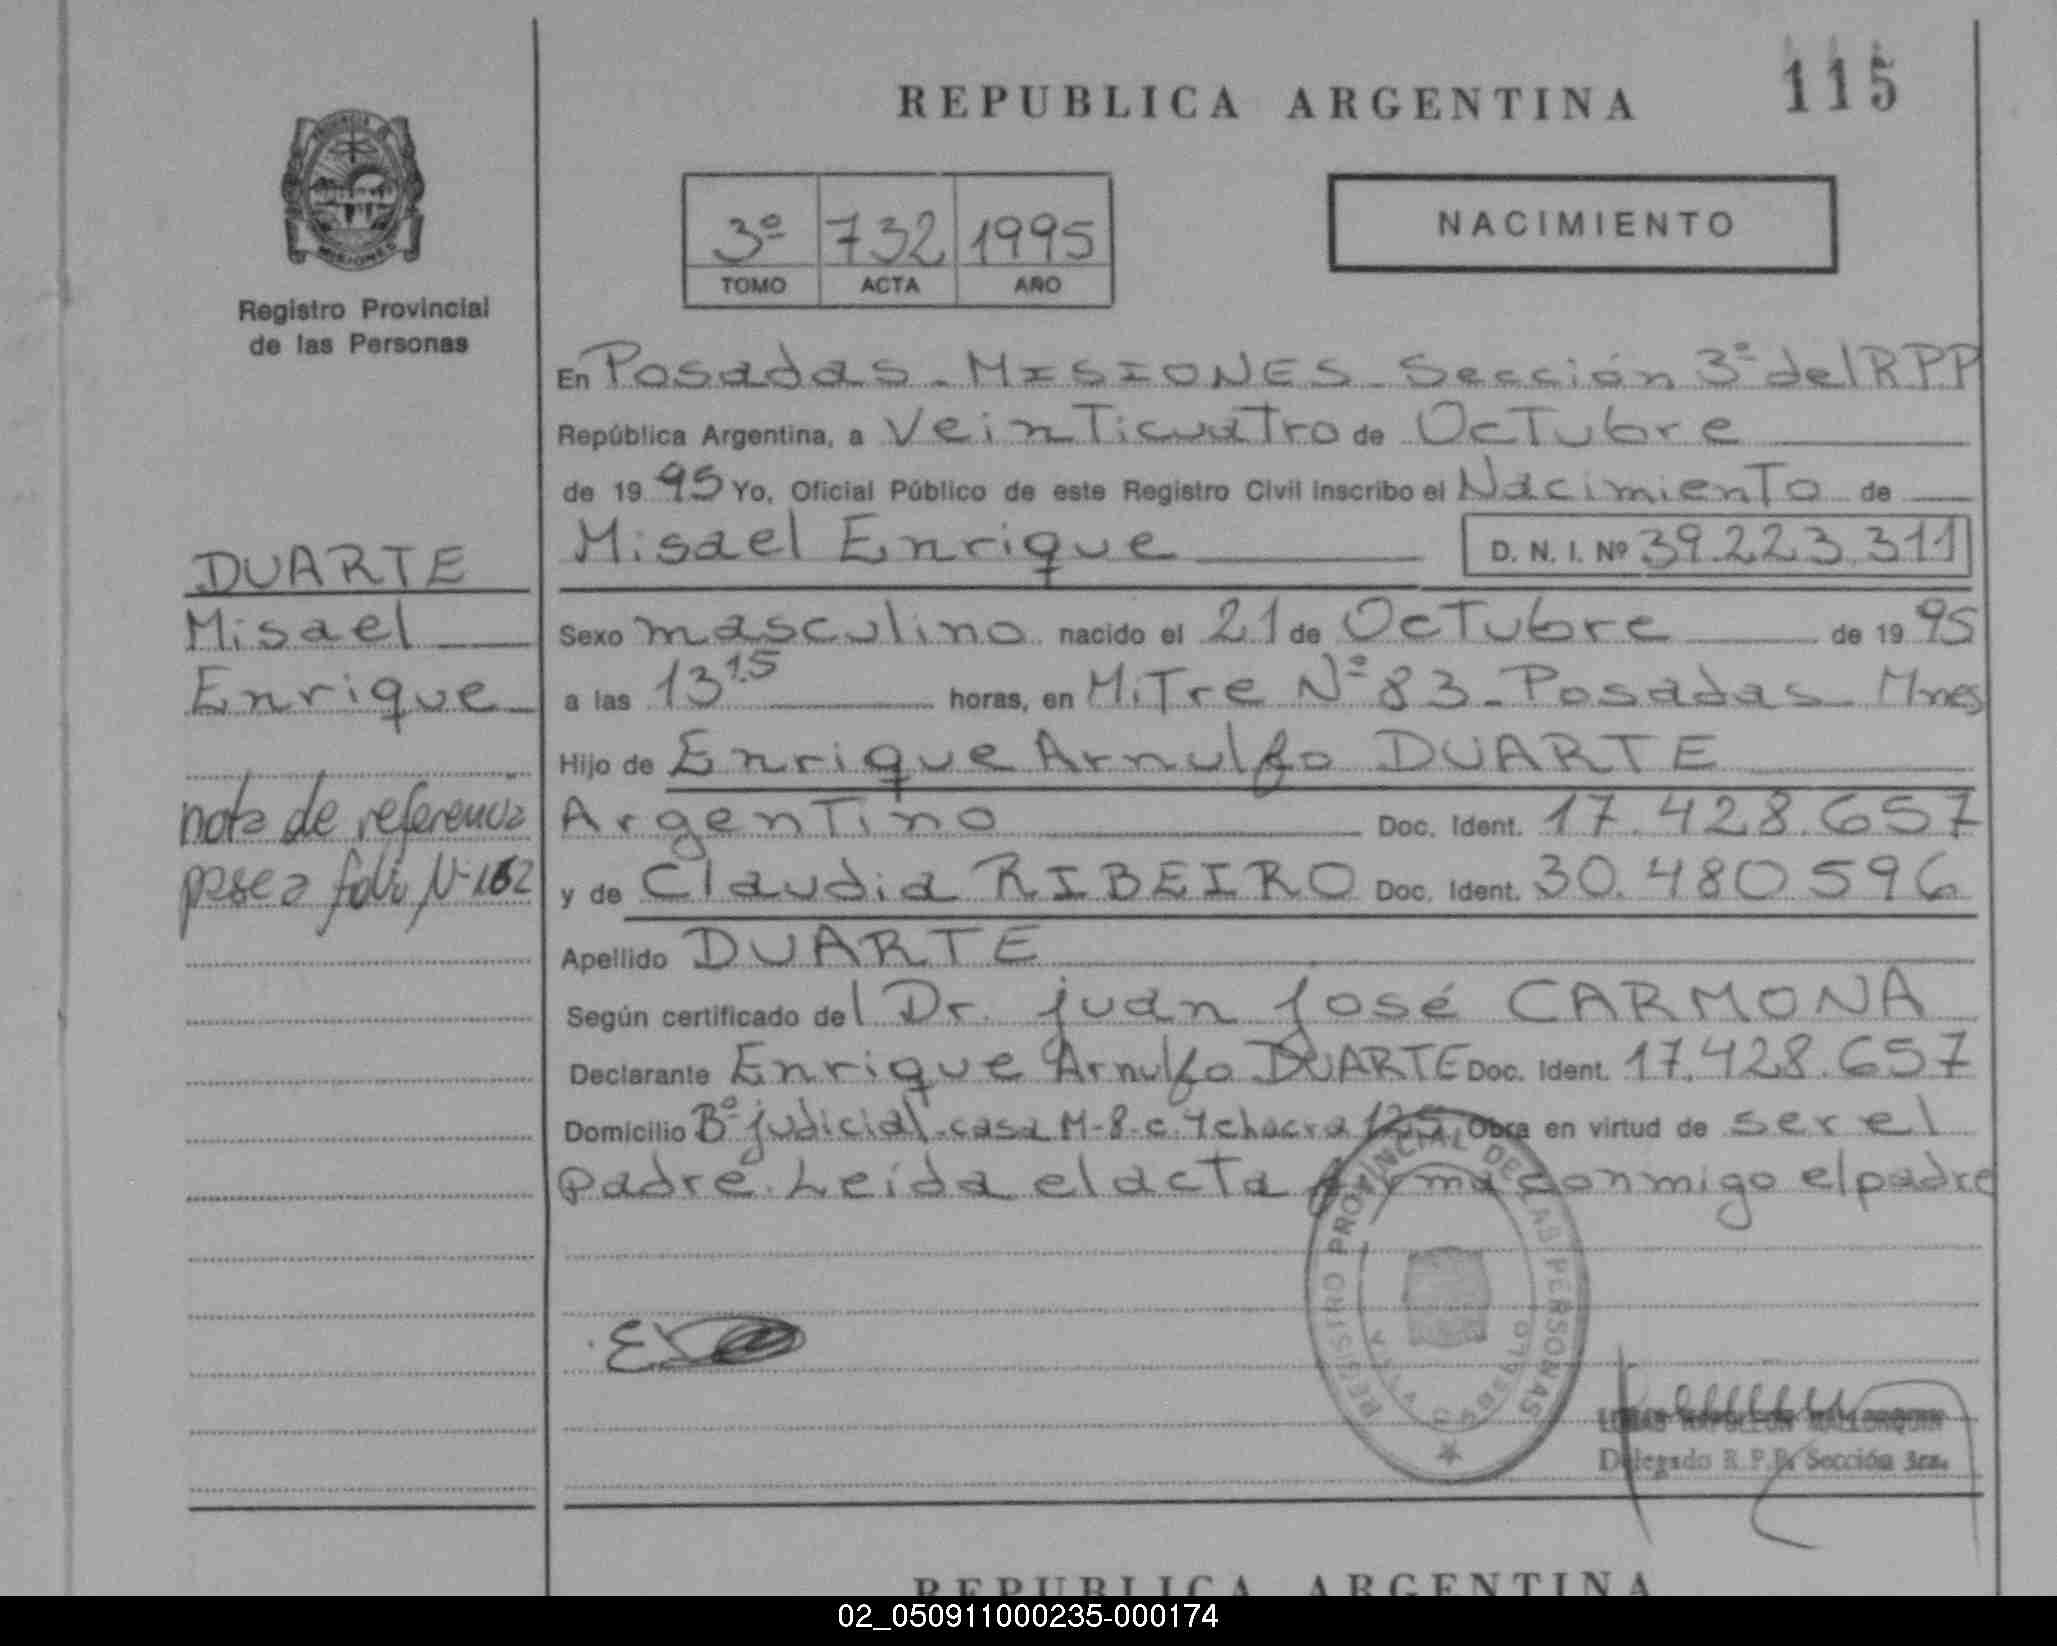 REPUBLICA ARGENTINA
115
Registro Provincial
de las Personas
3º 732 1995
TOMO ACTA AÑO
NACIMIENTO
En Posadas - MISIONES - Sección 3ª del RPP
República Argentina, a VeinTicuaTro de OcTubre
de 19 95 Yo, Oficial Público de este Registro Civil inscribo el NacimienTo de
Misael Enrique D. N. I. Nº 39.223.311
DUARTE
Misael
Enrique
nota de referencia
pase a folio Nº 162
Sexo masculino nacido el 21 de OcTubre de 19 95
a las 13 15 horas, en MiTre Nº 83 - Posadas - Mnes
Hijo de Enrique Arnulfo DUARTE
ArgenTino Doc. Ident. 17.428.657
y de Claudia RIBEIRO Doc. Ident. 30.480596
Apellido DUARTE
Según certificado del Dr. Juan José CARMONA
Declarante Enrique Arnulfo DUARTE Doc. Ident. 17.428.657
Domicilio Bº Judicial - casa M-8-c. 4 chacra 125 Obra en virtud de ser el
padre. Leida el acta firma conmigo el padre
REGISTRO PROVINCIAL DE LAS PERSONAS
Delegado R.P.P. Sección 3ra.
REPUBLICA ARGENTINA
02_050911000235-000174